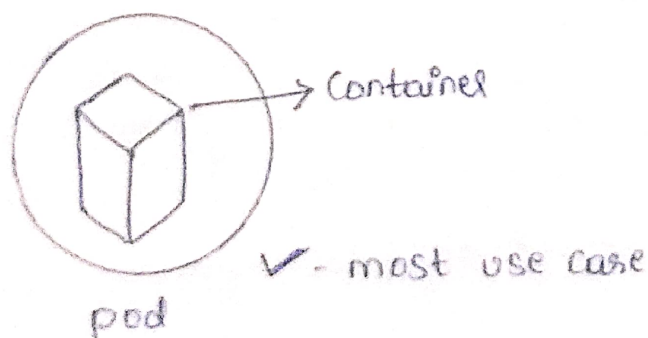 Container
✓ - most use case
pod